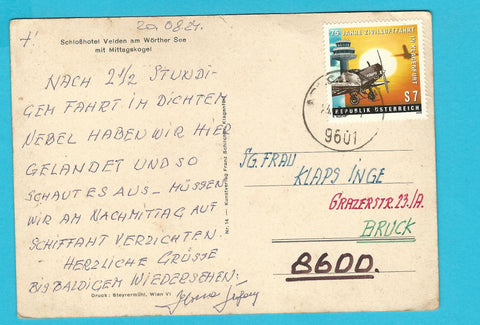 20.08.21.
Schloßhotel Velden am Wörther See
mit Mittagskogel
NACH 2 1/2 STUNDI-
GEM FAHRT IM DICHTEM
NEBEL HABEN WIR HIER
GELANDET UND SO
SCHAUT ES AUS – MÜSSEN
WIR AM NACHMITTAG AUF
SCHIFFAHRT VERZICHTEN.
HERZLICHE GRÜSSE
BIS BALDIGEM WIEDERSEHEN:
Druck: Steyrermühl, Wien VI
Nr. 14 — Kunstverlag Franz Schilcher, Klagenfurt
75 JAHRE ZIVILLUFTFAHRT
KLAGENFURT
REPUBLIK ÖSTERREICH
S 7
9601
SG. FRAU
KLAPS INGE
GRAZERSTR. 23./A.
BRUCK
8600.